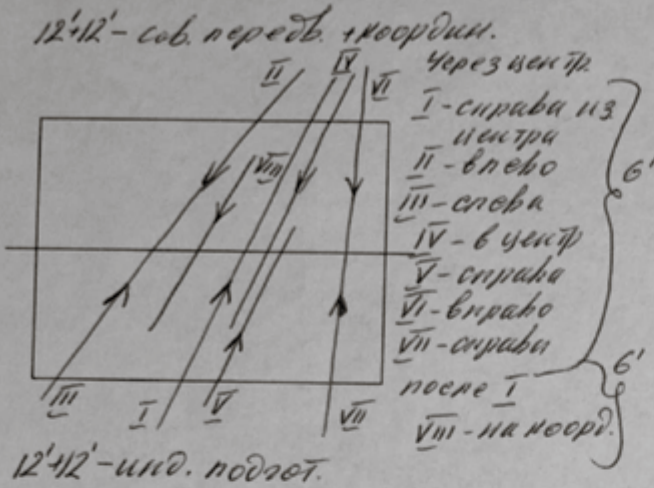 12'+12' - сов. передв. + координ.
II IV VI
Через центр
I - справа из
центра
II - влево
III - слева
IV - в центр
V - справа
VI - вправо
VII - справа
6'
VIII
после I
VIII - на коорд.
6'
III I V VII
12'+12' - инд. подгот.